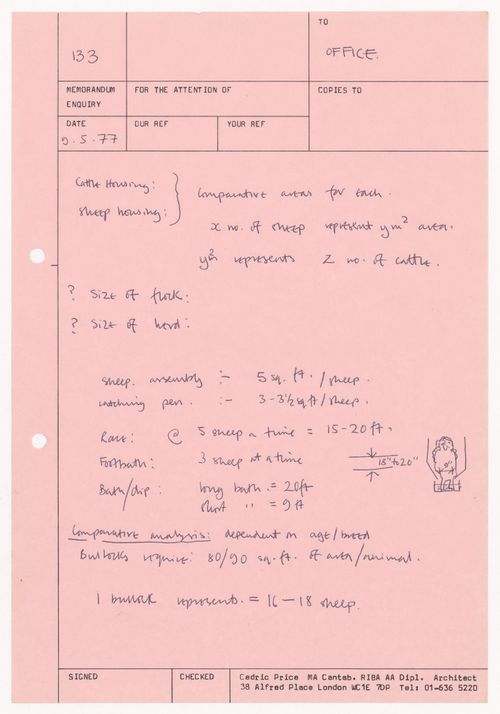 133
TO
OFFICE.
MEMORANDUM
ENQUIRY
FOR THE ATTENTION OF
COPIES TO
DATE
9.5.77
OUR REF
YOUR REF
Cattle Housing:
Sheep housing:
Comparative areas for each.
x no. of sheep represent ym² area.
ym² represents Z no. of cattle.
? Size of flock:
? Size of herd:
Sheep assembly :- 5 sq. ft. / sheep.
catching pen. :- 3-3½ sq ft / sheep.
Race: @ 5 sheep a time = 15-20 ft.
Footbath: 3 sheep at a time
18" to 20"
Bath/dip: long bath = 20ft
short " = 9 ft
Comparative analysis: dependent on age/breed
Bullocks require: 80/90 sq. ft. of area/animal.
1 bullock represents = 16 — 18 sheep.
SIGNED
CHECKED
Cedric Price MA Cantab. RIBA AA Dipl. Architect
38 Alfred Place London WC1E 7DP Tel: 01-636 5220